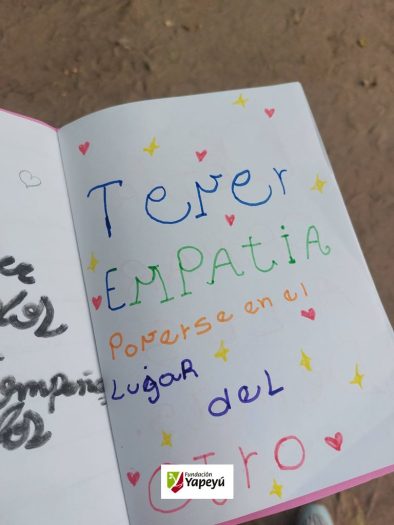 Tener
EMPAtiA
Ponerse en el
Lugar
deL
Otro
ompañe
los
Fundación
Yapeyú